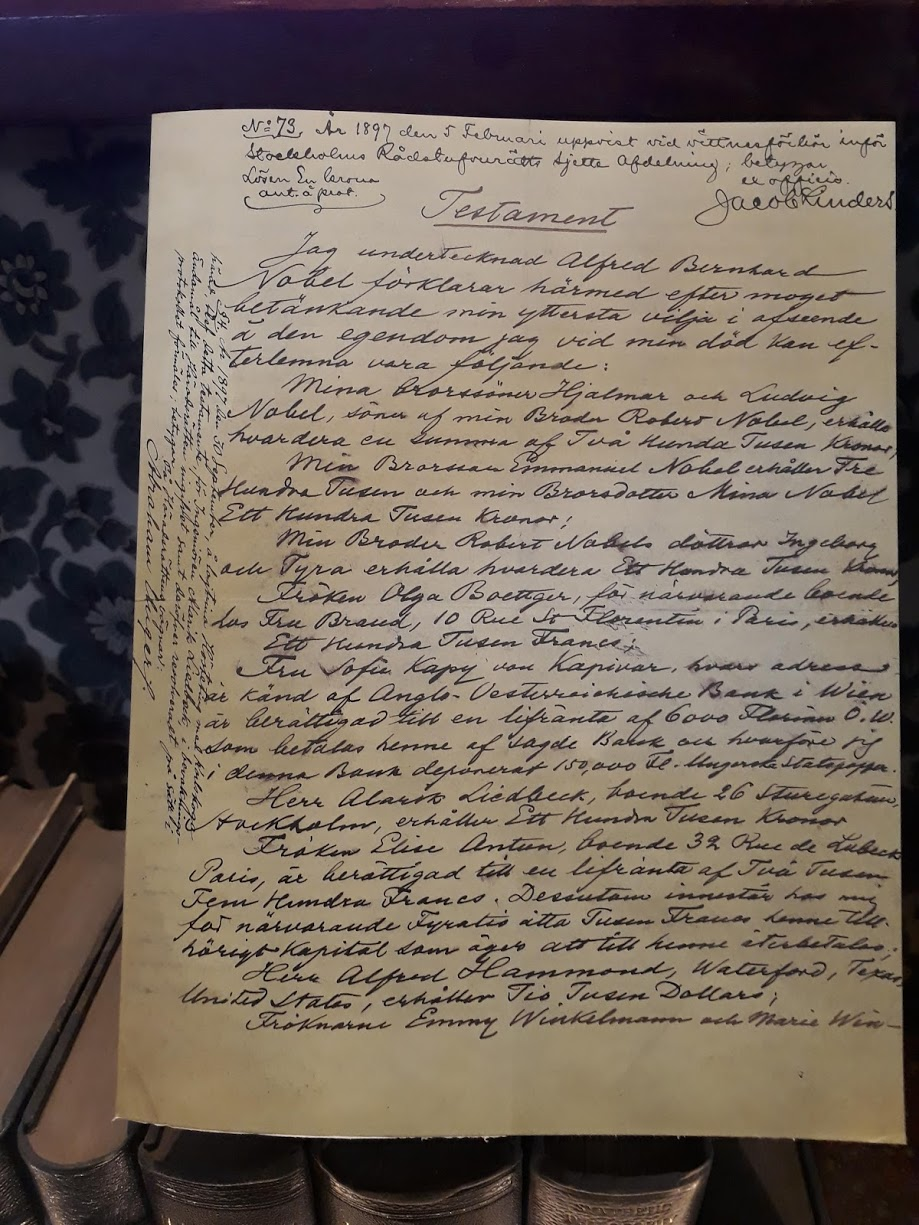 No 73, År 1897 den 5 Februari uppvist vid vittnesförhör inför
Stockholms Rådstufvurätts sjette Afdelning; betygar
Lösen En krona
ex officio.
ant. å prot.
Testament
Jag undertecknad Alfred Bernhard
Nobel förklarar härmed efter moget
betänkande min yttersta vilja i afseende
å den egendom jag vid min död kan ef-
terlemna vara följande:
Mina brorsöner Hjalmar och Ludvig
Nobel, söner af min Broder Robert Nobel, erhålla
hvardera en summa af Två Hundra Tusen Kronor;
Min Brorsson Emmanuel Nobel erhåller Tre
Hundra Tusen och min Brorsdotter Mina Nobel
Ett Hundra Tusen Kronor;
Min Broder Robert Nobels döttrar Ingeborg
och Tyra erhålla hvardera Ett Hundra Tusen Kronor;
Fröken Olga Boettger, för närvarande boende
hos Fru Brand, 10 Rue St Florentin i Paris, erhåller
Ett Hundra Tusen Francs;
Fru Sofie Kapy von Kapivar, hvars adress
är känd af Anglo-Oesterreichische Bank i Wien
är berättigad till en lifränta af 6000 Florins Ö.W.
som betalas henne af sagde Bank och hvarföre jag
i denna Bank deponerat 150,000 Fl. i Ungerska Statspapper.
Herr Alarik Liedbeck, boende 26 Sturegatan,
Stockholm, erhåller Ett Hundra Tusen Kronor
Fröken Elise Antun, boende 32 Rue de Lubeck
Paris, är berättigad till en lifränta af Två Tusen
Fem Hundra Francs. Dessutom innestår hos mig
för närvarande Fyratio åtta Tusen Francs henne till-
hörigt Kapital som äger att till henne återbetalas;
Herr Alfred Hammond, Waterford, Texas,
United States, erhåller Tio Tusen Dollars;
Fröknarne Emmy Winkelmann och Marie Win-
År 1897 den 30